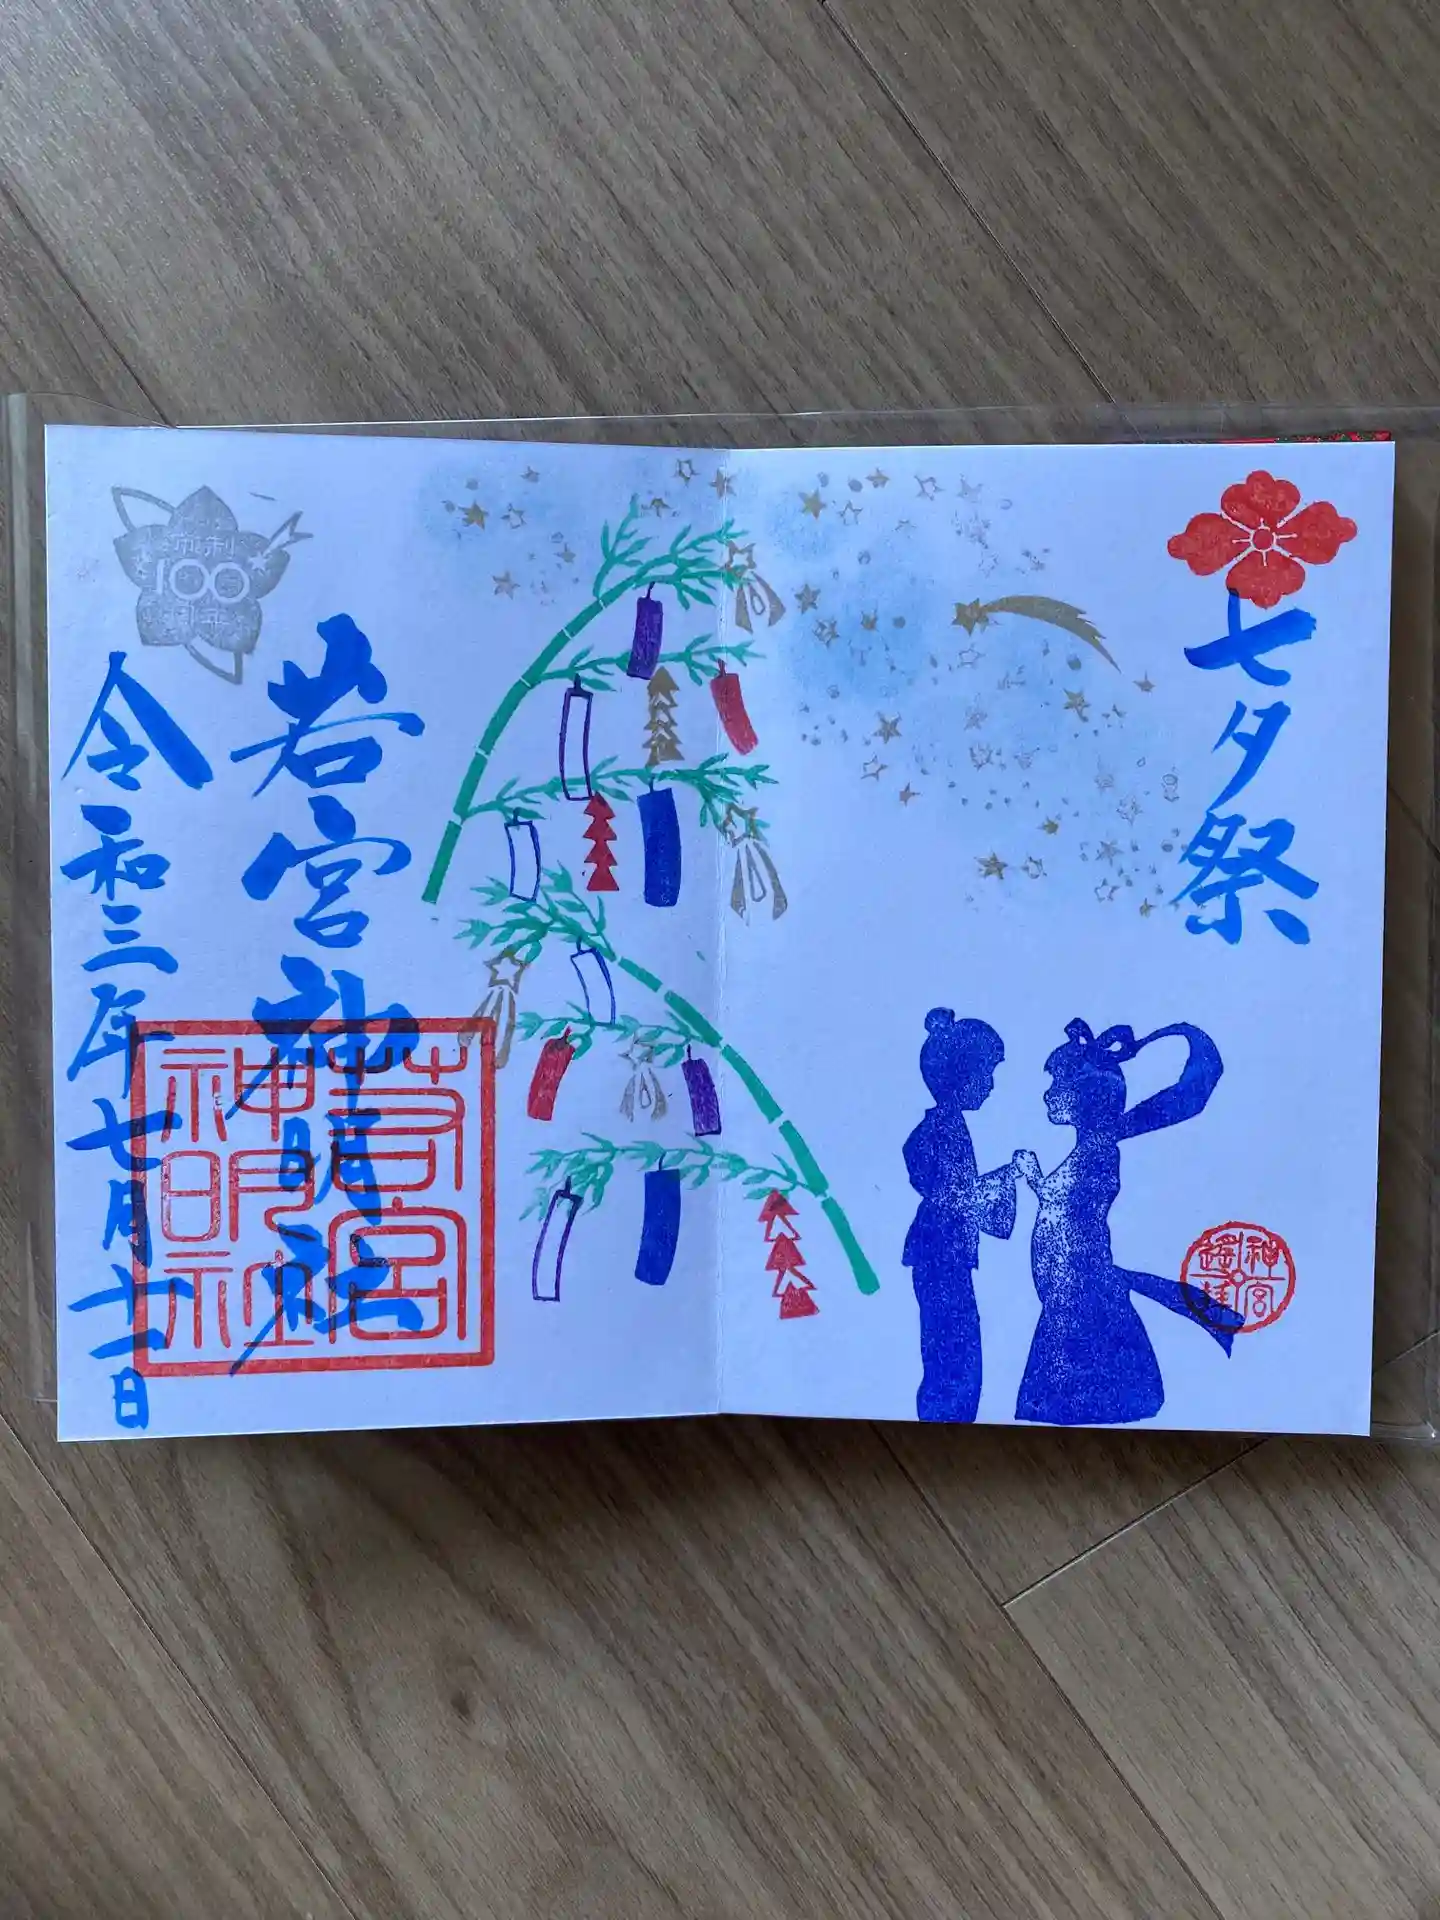 七夕祭
神宮
遥拝
若宮神明社
令和三年七月十一日
市制
100
周年
若宮
神明社